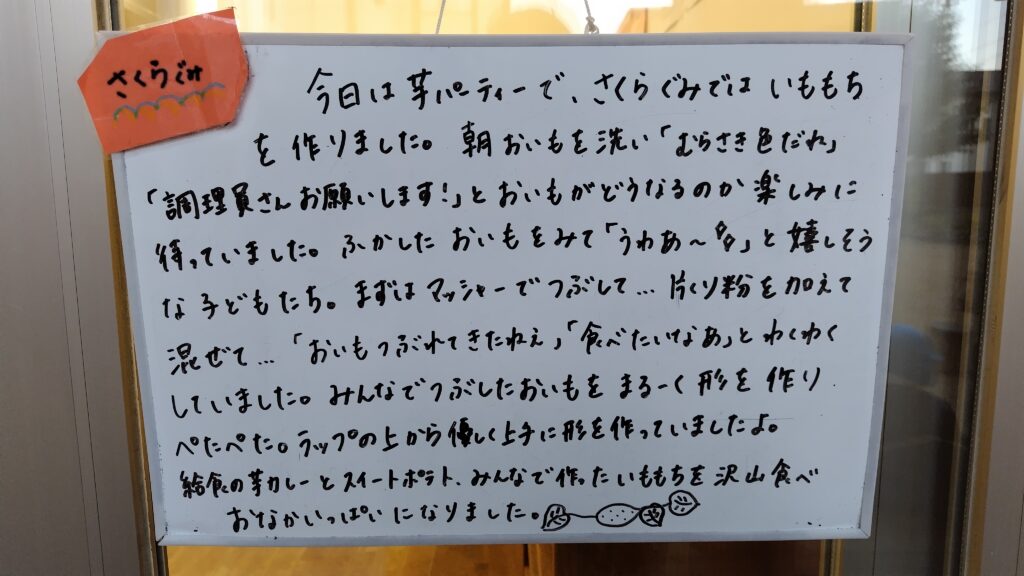 さくらぐみ
今日は芋パーティーで、さくらぐみではいももち
を作りました。朝おいもを洗い「むらさき色だれ」
「調理員さんお願いします!」とおいもがどうなるのか楽しみに
待っていました。ふかしたおいもをみて「うわあ〜」と嬉しそう
な子どもたち。まずはマッシャーでつぶして…片くり粉を加えて
混ぜて…「おいもつぶれてきたねぇ」「食べたいなあ」とわくわく
していました。みんなでつぶしたおいもをまるーく形を作り
ぺたぺた。ラップの上から優しく上手に形を作っていましたよ。
給食の芋カレーとスイートポテト、みんなで作ったいももちを沢山食べ
おなかいっぱいになりました。